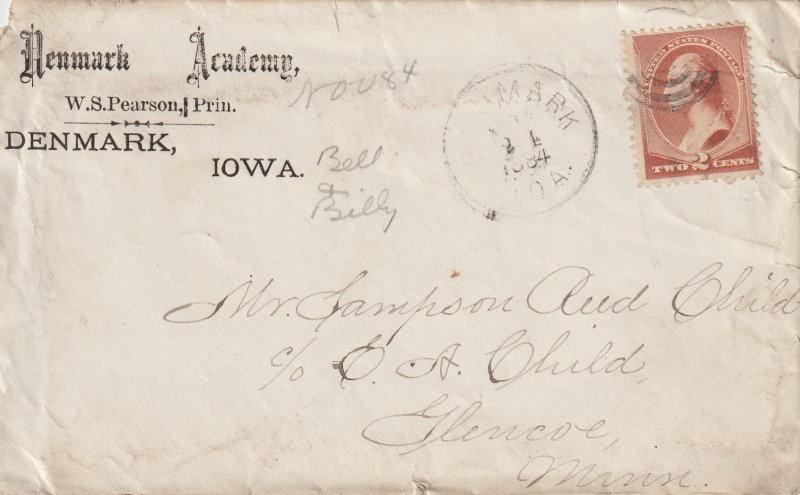 Denmark Academy,
W.S. Pearson, Prin.
DENMARK,
IOWA.
NOV 84
Bell
&
Billy
MARK
1
1884
OA.
UNITED STATES POSTAGE
TWO 2 CENTS
Mr. Sampson Reed Child
c/o E. A. Child,
Glencoe,
Minn.